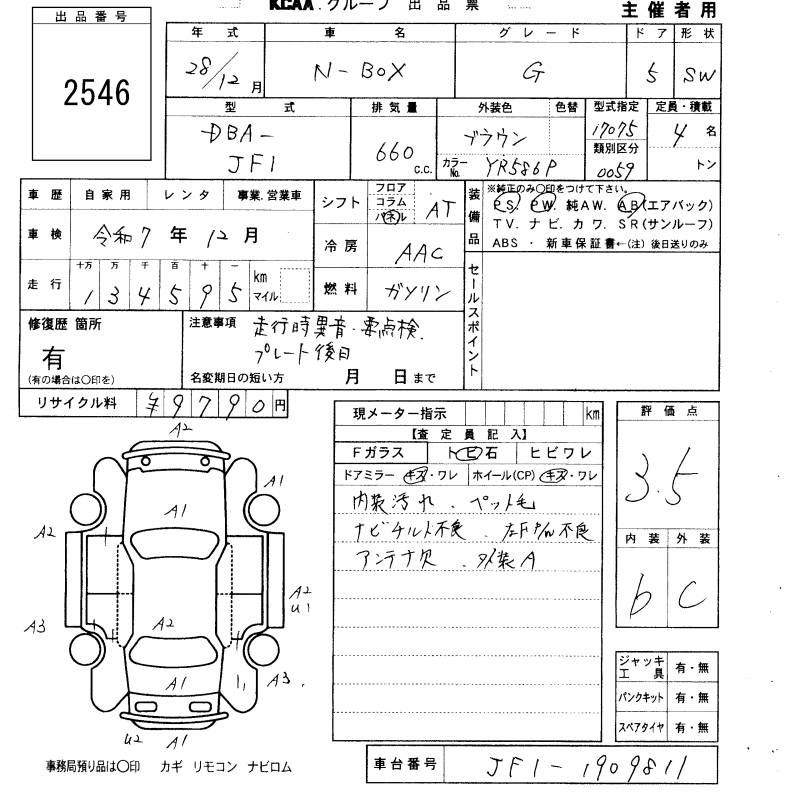 KCAA.グループ 出品票
主催者用
出品番号
2546
年式 車名 グレード ドア 形状
28/12月 N-BOX G 5 SW
型式 排気量 外装色 色替 型式指定 定員・積載
DBA-JF1 660 c.c. ブラウン 17075 4名
カラーNo. YR586P 類別区分 0059 トン
車歴 自家用 レンタ 事業.営業車
車検 令和7年12月
走行 十万 万 千 百 十 一
134595 km マイル
シフト フロア コラム パネル AT
冷房 AAC
燃料 ガソリン
装備品
※純正のみ○印をつけて下さい。
PS, PW. 純AW. AB(エアバック)
TV. ナビ. カワ. SR(サンルーフ)
ABS ・ 新車保証書←(注) 後日送りのみ
セールスポイント
修復歴 箇所
有
(有の場合は○印を)
注意事項 走行時異音・要点検
プレート後日
名変期日の短い方 月 日まで
リサイクル料 ¥9790円
現メーター指示 km
【査定員記入】
Fガラス トビ石 ヒビワレ
ドアミラー キズ・ワレ ホイール(CP) キズ・ワレ
内装汚れ . ペット毛
ナビチルト不良 . 左F P/W不良
アンテナ欠 . 外装A
評価点
3.5
内装 外装
b C
ジャッキ工具 有・無
パンクキット 有・無
スペアタイヤ 有・無
A2
A1
A1
A2
A2
U1
A2
A3
A1
A3
U2
A1
事務局預り品は○印 カギ リモコン ナビロム
車台番号 JF1-1909811